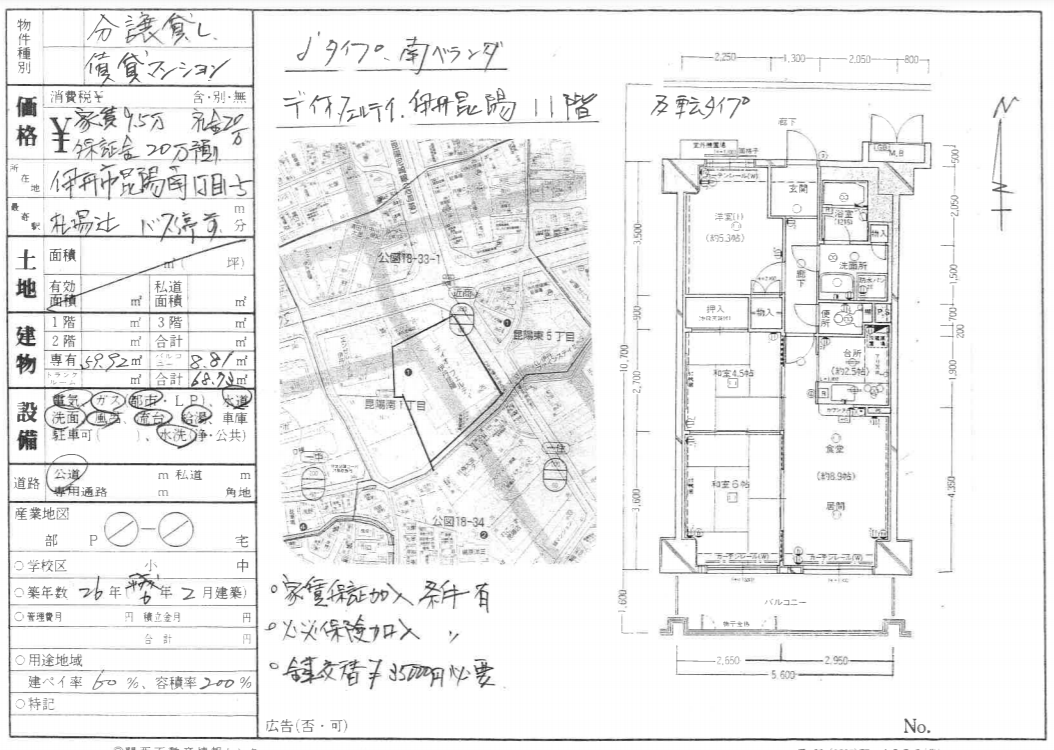 物件種別
分譲貸し
賃貸マンション
価格
消費税¥ 含・別・無
¥ 家賃9.5万 礼金20万
保証金20万
所在地
伊丹市昆陽南1丁目
最寄駅
札場辻 バス停前 m 分
土地
面積 ㎡( 坪)
有効面積 ㎡ 私道面積 ㎡
建物
1階 ㎡ 3階 ㎡
2階 ㎡ 合計 ㎡
専有 59.92㎡ バルコニー 8.81㎡
トランクルーム ㎡ 合計 68.73㎡
設備
電気、ガス(都市・LP)、水道
洗面、風呂、流台、給湯、車庫
駐車可( )、水洗(浄・公共)
道路
公道 m 私道 m
専用通路 m 角地
産業地図
部 P ー 宅
○学校区 小 中
○築年数 26年( 6年2月建築)
○管理費月 円 積立金月 円
合計 円
○用途地域
建ペイ率 60%、容積率 200%
○特記
J'タイプ、南ベランダ
ディオ・フェルティ、伊丹昆陽 11階
公図18-33-1
近商
昆陽東5丁目
昆陽南1丁目
一中
一住
公図18-34
○家賃保証加入 条件有
○火災保険加入 〃
○鍵交換 ¥35000円必要
広告(否・可)
反転タイプ
N
2,250 1,300 2,050 800
廊下
室外機置場
M.B
カーテンレール(W)
玄関
洋室(1)
(約5.3帖)
浴室
物入
廊下
洗面所
防水パン
押入
物入
便所
P.S
台所
(約2.5帖)
和室4.5帖
食堂
(約8.9帖)
居間
和室6帖
カーテンレール(W)
カーテンレール(W)
バルコニー
3,500
900
2,700
3,600
10,700
1,600
500
2,050
1,500
700
200
1,900
4,350
2,650 2,950
5,600
No.